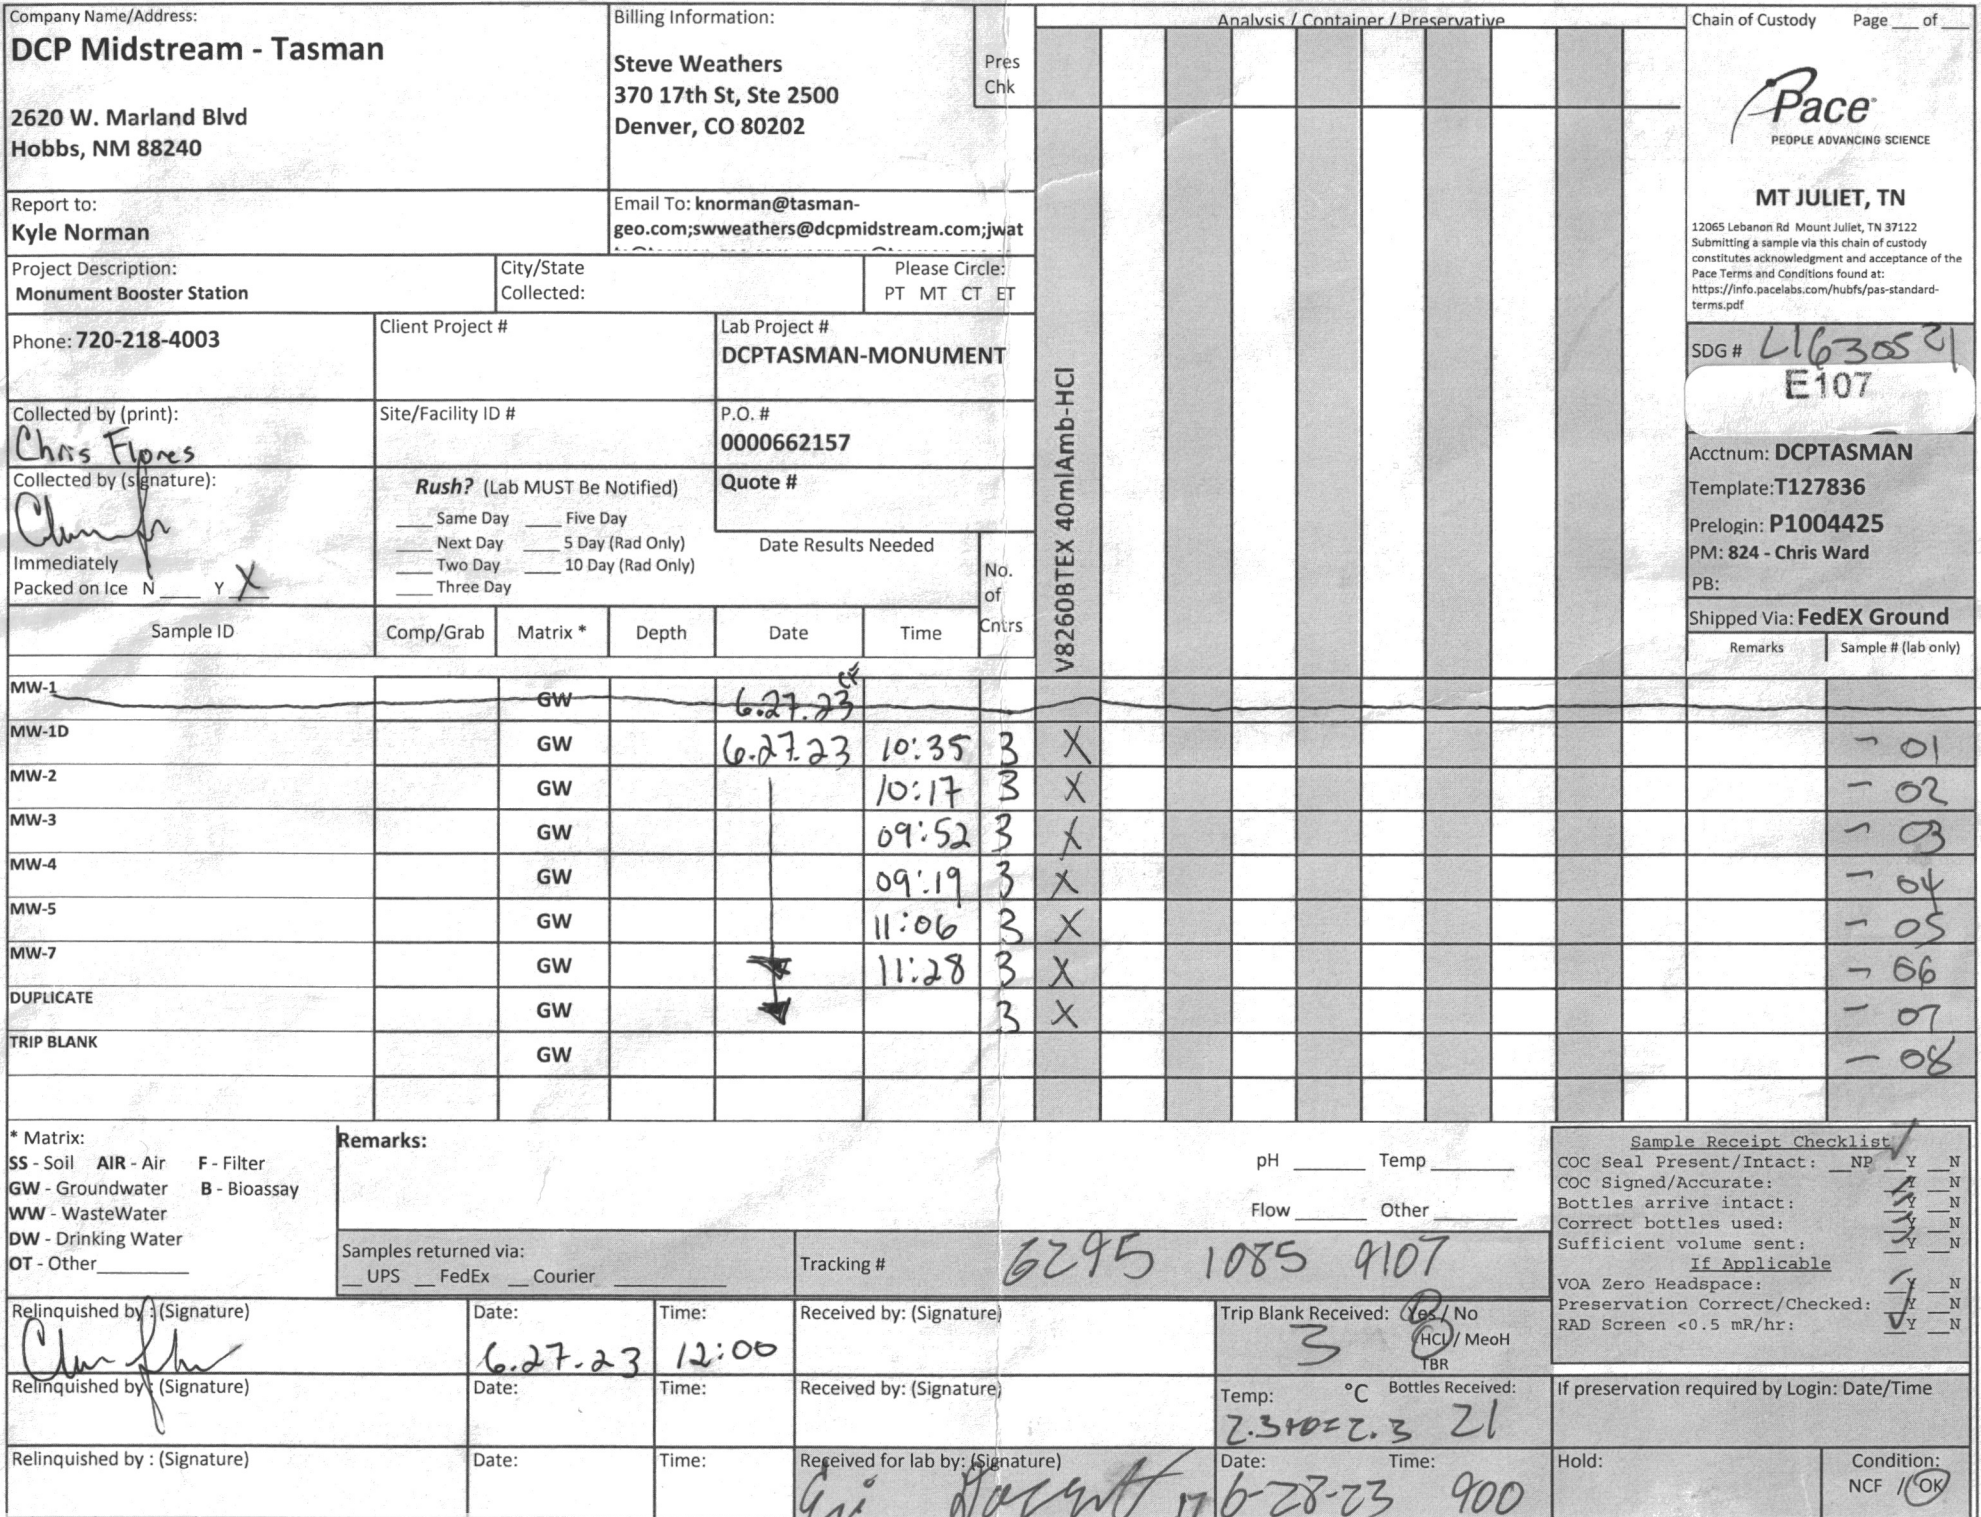 Company Name/Address:
DCP Midstream - Tasman
2620 W. Marland Blvd
Hobbs, NM 88240
Billing Information:
Steve Weathers
370 17th St, Ste 2500
Denver, CO 80202
Pres
Chk
Analysis / Container / Preservative
Chain of Custody Page ___ of ___
Pace
PEOPLE ADVANCING SCIENCE
MT JULIET, TN
12065 Lebanon Rd Mount Juliet, TN 37122
Submitting a sample via this chain of custody
constitutes acknowledgment and acceptance of the
Pace Terms and Conditions found at:
https://info.pacelabs.com/hubfs/pas-standard-
terms.pdf
Report to:
Kyle Norman
Email To: knorman@tasman-
geo.com;swweathers@dcpmidstream.com;jwat
Project Description:
Monument Booster Station
City/State
Collected:
Please Circle:
PT MT CT ET
Phone: 720-218-4003
Client Project #
Lab Project #
DCPTASMAN-MONUMENT
SDG # L1630521
E107
Collected by (print):
Chris Flores
Site/Facility ID #
P.O. #
0000662157
Acctnum: DCPTASMAN
Template:T127836
Prelogin: P1004425
PM: 824 - Chris Ward
PB:
Shipped Via: FedEX Ground
Collected by (signature):
Immediately
Packed on Ice N ___ Y X
Rush? (Lab MUST Be Notified)
___ Same Day ___ Five Day
___ Next Day ___ 5 Day (Rad Only)
___ Two Day ___ 10 Day (Rad Only)
___ Three Day
Quote #
Date Results Needed
No.
of
Cntrs
V8260BTEX 40mlAmb-HCl
Sample ID Comp/Grab Matrix * Depth Date Time
Remarks Sample # (lab only)
MW-1 GW 6.27.23 CF
MW-1D GW 6.27.23 10:35 3 X - 01
MW-2 GW 10:17 3 X - 02
MW-3 GW 09:52 3 X - 03
MW-4 GW 09:19 3 X - 04
MW-5 GW 11:06 3 X - 05
MW-7 GW 11:28 3 X - 06
DUPLICATE GW 3 X - 07
TRIP BLANK GW - 08
* Matrix:
SS - Soil AIR - Air F - Filter
GW - Groundwater B - Bioassay
WW - WasteWater
DW - Drinking Water
OT - Other
Remarks:
pH ___ Temp ___
Flow ___ Other ___
Samples returned via:
__ UPS __ FedEx __ Courier
Tracking # 6295 1085 9107
Sample Receipt Checklist
COC Seal Present/Intact: __NP __Y __N
COC Signed/Accurate: __Y __N
Bottles arrive intact: __Y __N
Correct bottles used: __Y __N
Sufficient volume sent: __Y __N
If Applicable
VOA Zero Headspace: __Y __N
Preservation Correct/Checked: __Y __N
RAD Screen <0.5 mR/hr: __Y __N
Relinquished by : (Signature)
Date:
6.27.23
Time:
12:00
Received by: (Signature)
Trip Blank Received: Yes / No
3 HCL / MeoH
TBR
Relinquished by : (Signature)
Date:
Time:
Received by: (Signature)
Temp: °C Bottles Received:
2.3+0=2.3 21
If preservation required by Login: Date/Time
Relinquished by : (Signature)
Date:
Time:
Received for lab by: (Signature)
Date: Time:
6-28-23 900
Hold:
Condition:
NCF / OK